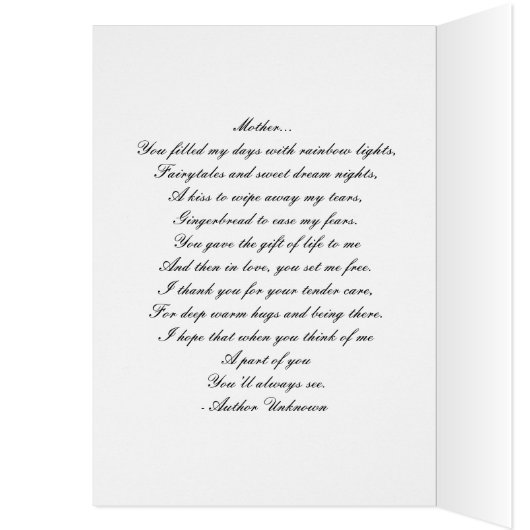 Mother...
You filled my days with rainbow lights,
Fairytales and sweet dream nights,
A kiss to wipe away my tears,
Gingerbread to ease my fears.
You gave the gift of life to me
And then in love, you set me free.
I thank you for your tender care,
For deep warm hugs and being there.
I hope that when you think of me
A part of you
You'll always see.
- Author Unknown